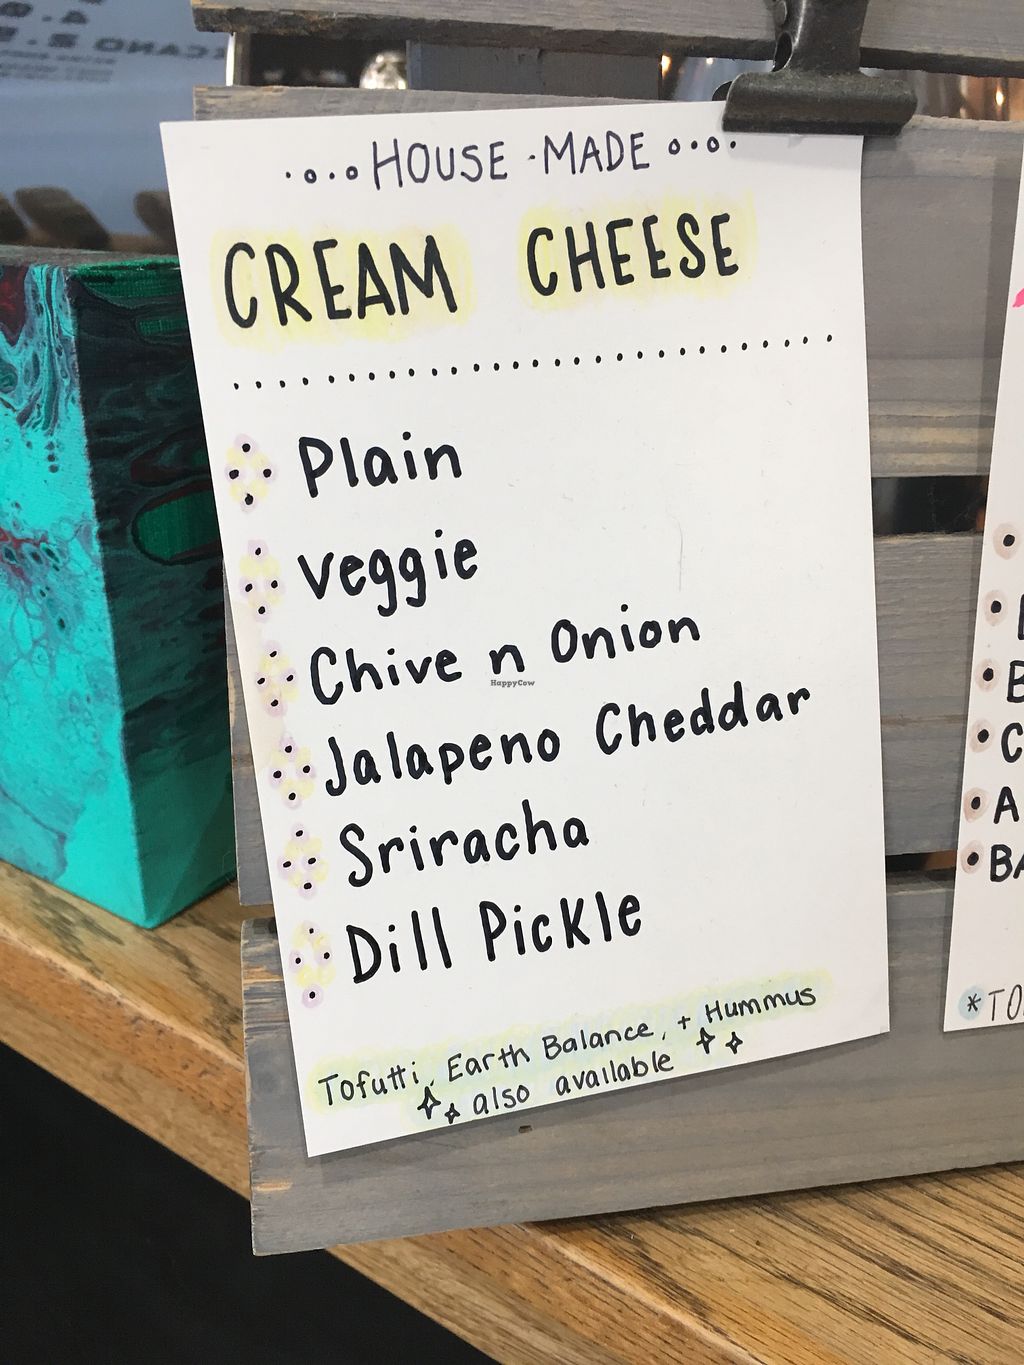 HOUSE-MADE
CREAM CHEESE
Plain
veggie
Chive n Onion
HappyCow
Jalapeno Cheddar
Sriracha
Dill Pickle
Tofutti, Earth Balance, + Hummus
also available